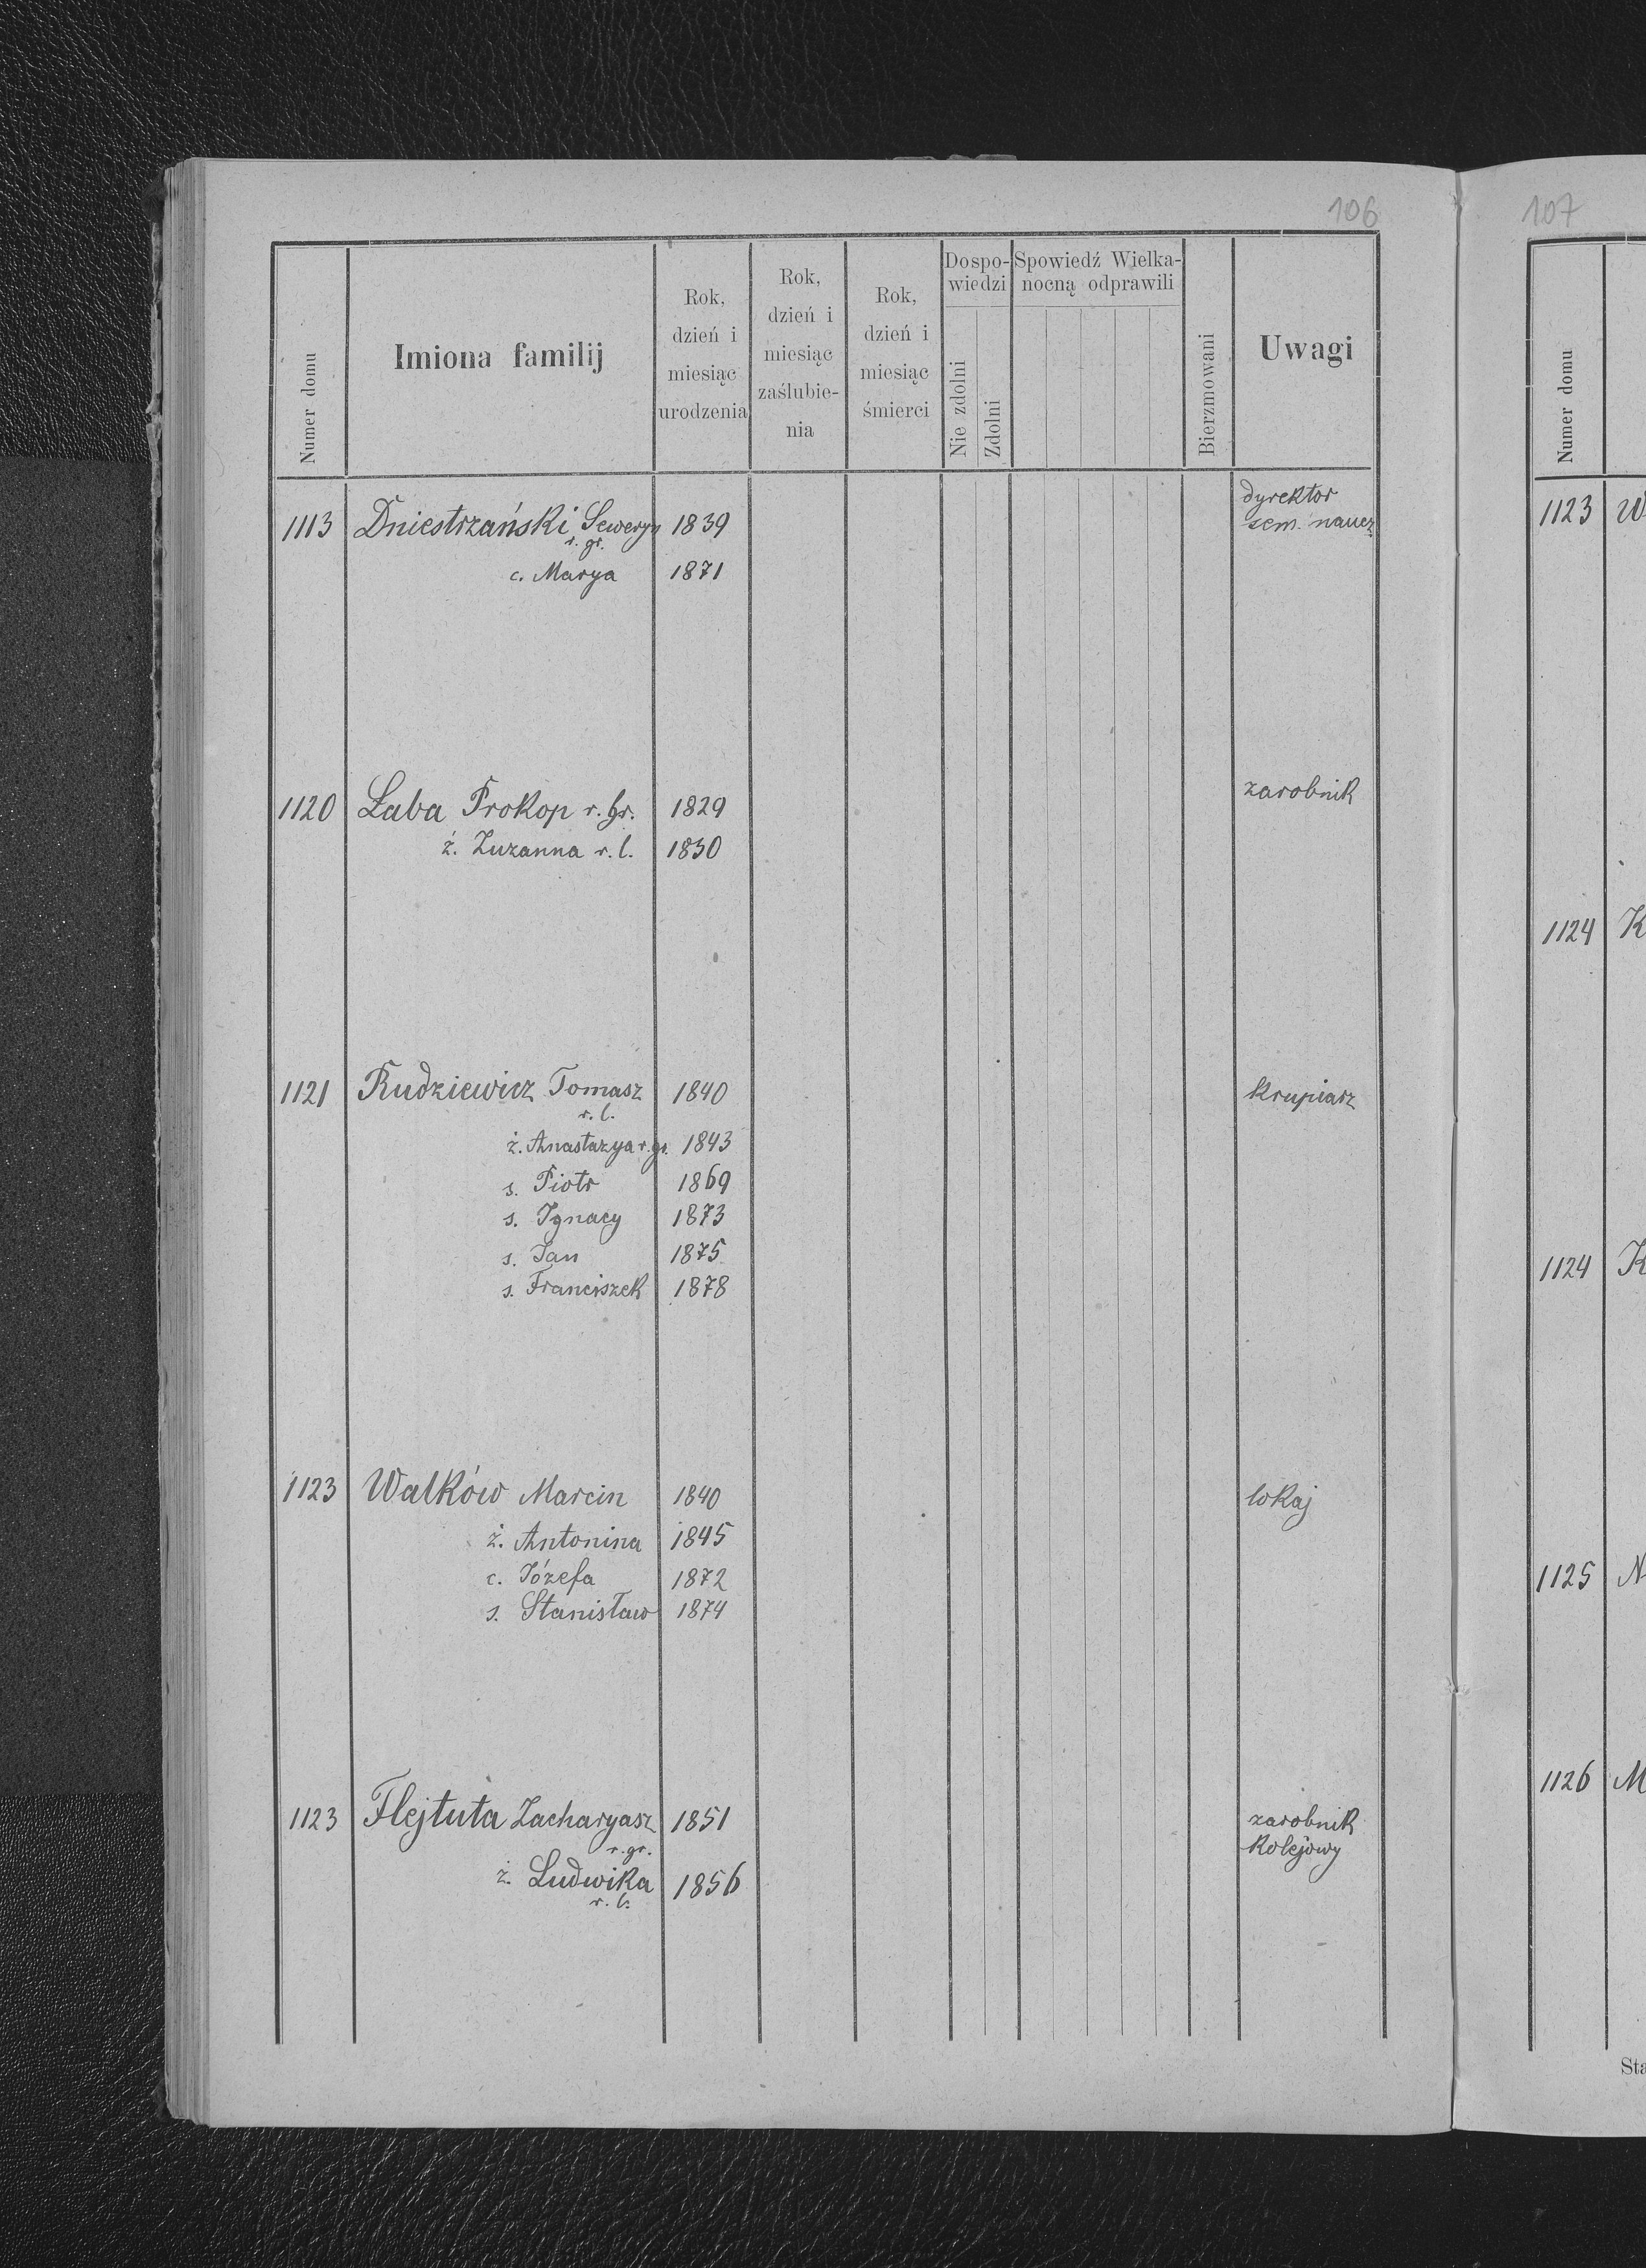 106
Numer domu
Imiona familij
Rok, dzień i miesiąc urodzenia
Rok, dzień i miesiąc zaślubie-nia
Rok, dzień i miesiąc śmierci
Dospo-wiedzi
Nie zdolni
Zdolni
Spowiedź Wielka-nocną odprawili
Bierzmowani
Uwagi
1113 Dniestrzański Seweryn 1839 dyrektor
r. gr. sem. naucz
c. Marya 1871
1120 Łaba Prokop r. gr. 1829 zarobnik
ż. Zuzanna r. l. 1830
1121 Rudziewicz Tomasz 1840 krupiarz
r. l.
ż. Anastazya r. gr. 1843
s. Piotr 1869
s. Ignacy 1873
s. Jan 1875
s. Franciszek 1878
1123 Walków Marcin 1840 lokaj
ż. Antonina 1845
c. Józefa 1872
s. Stanisław 1874
1123 Flejtuta Zacharyasz 1851 zarobnik
r. gr. kolejowy
ż. Ludwika 1856
r. l.
107
Numer domu
1123 W
1124 K
1124 K
1125 N
1126 M
Sta